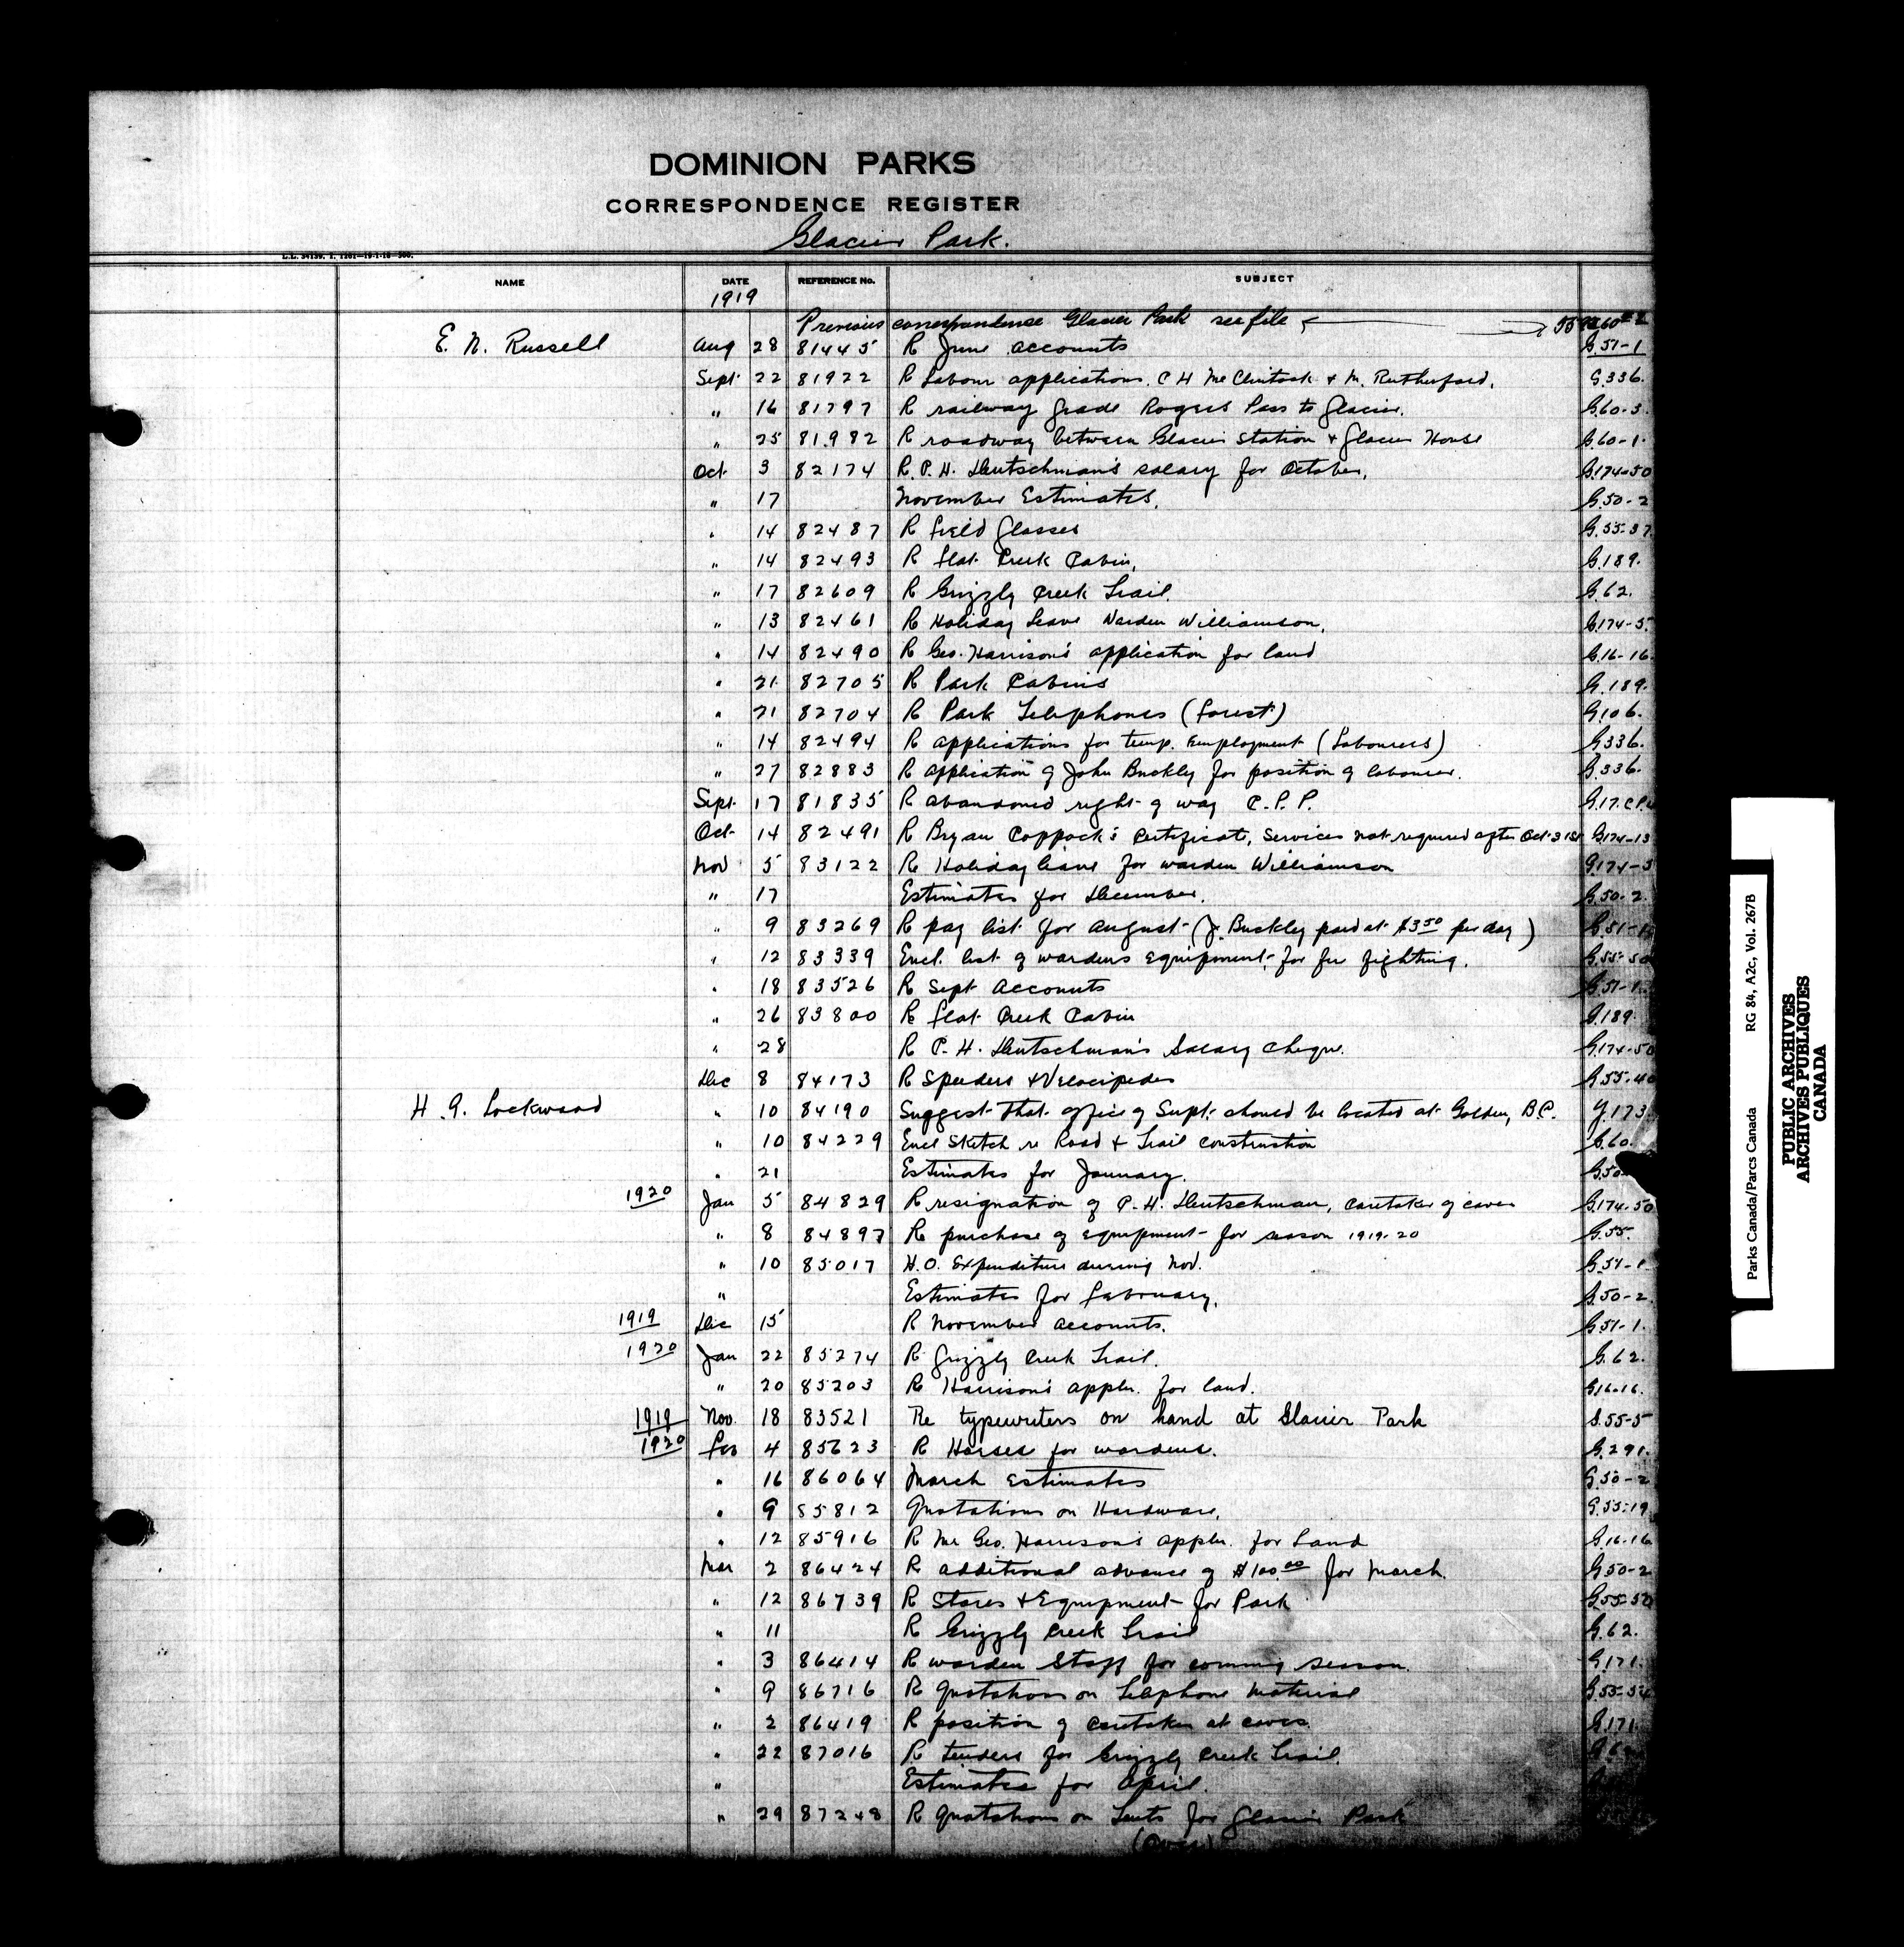 DOMINION PARKS
CORRESPONDENCE REGISTER
Glacier Park.
L.L. 34139. T. 1261—19-1-16—500.
NAME DATE REFERENCE No. SUBJECT
1919
Previous correspondence Glacier Park see file
E. N. Russell Aug 28 81445 R June accounts G.51-1
Sept. 22 81922 R Labour applications. C H McClintock + M. Rutherford. G.336.
" 16 81797 R railway grade Rogers Pass to Glacier. G.60-3.
" 25 81982 R roadway between Glacier Station + Glacier House G.60-1.
Oct. 3 82174 R. P. H. Deutschman's salary for October. G.174-50
" 17 November Estimates. G.50-2
" 14 82487 R field Glasses G.55-37.
" 14 82493 R flat Creek Cabin. G.189.
" 17 82609 R Grizzly Creek Trail. G.62.
" 13 82461 R Holiday Leave Warden Williamson. G.174-5.
" 14 82490 R Geo. Harrison's application for land G.16-16.
" 21 82705 R Park Cabins G.189.
" 21 82704 R Park Telephones (forest) G.106.
" 14 82494 R applications for temp. Employment (Labourers) G.336.
" 27 82883 R application of John Buckly for position of labourer. G.336.
Sept. 17 81835 R abandoned right of way C.P.R. G.17.C.P.
Oct. 14 82491 R Bryan Coppock's Certificate, Services not required after Oct 31st G.174-13
Nov 5 83122 R Holiday leave for warden Williamson G.174-5
" 17 Estimates for December. G.50-2.
" 9 83269 R pay list for August (J. Buckley paid at $3.50 per day) G.51-1
" 12 83339 Encl. list of wardens equipment for fire fighting. G.55-50
" 18 83526 R Sept Accounts G.51-1.
" 26 83800 R flat Creek Cabin G.189.
" 28 R P. H. Deutschman's Salary cheque. G.174-50
Dec 8 84173 R Speeders + Velocipedes G.55-40
H. A. Lockwood " 10 84190 Suggest that office of Supt. should be located at Golden, B.C. G.173.
" 10 84229 Encl Sketch re Road & Trail construction G.60.
" 21 Estimates for January. G.50
1920 Jan 5 84829 R resignation of P. H. Deutschman, caretaker of caves G.174-50
" 8 84897 R purchase of equipment for season 1919-20 G.55.
" 10 85017 H.O. Expenditure during Nov. G.51-1
" Estimates for February. G.50-2.
1919 Dec 15 R November accounts. G.51-1.
1920 Jan 22 85274 R Grizzly Creek Trail. G.62.
" 20 85203 R Harrison's appln. for land. G16-16.
1919 Nov. 18 83521 Re typewriters on hand at Glacier Park G.55-5
1920 Feb 4 85623 R Horses for wardens. G.291.
" 16 86064 March Estimates G.50-2
" 9 85812 Quotations on Hardware. G.55-19
" 12 85916 R Mr Geo. Harrison's appln. for Land G.16-16
Mar 2 86424 R additional advance of $100.00 for March. G.50-2
" 12 86739 R Stores + Equipment for Park G.55-52
" 11 R Grizzly Creek Trail G.62.
" 3 86414 R warden Staff for coming season. G.171.
" 9 86716 R Quotations on Telephone Material G.55-54
" 2 86419 R position of caretaker at caves. G.171.
" 22 87016 R tenders for Grizzly Creek Trail.
" Estimates for April.
" 29 87248 R Quotations on Tents for Glacier Park
(Over)
Parks Canada/Parcs Canada RG 84, A2c, Vol. 267B
PUBLIC ARCHIVES
ARCHIVES PUBLIQUES
CANADA